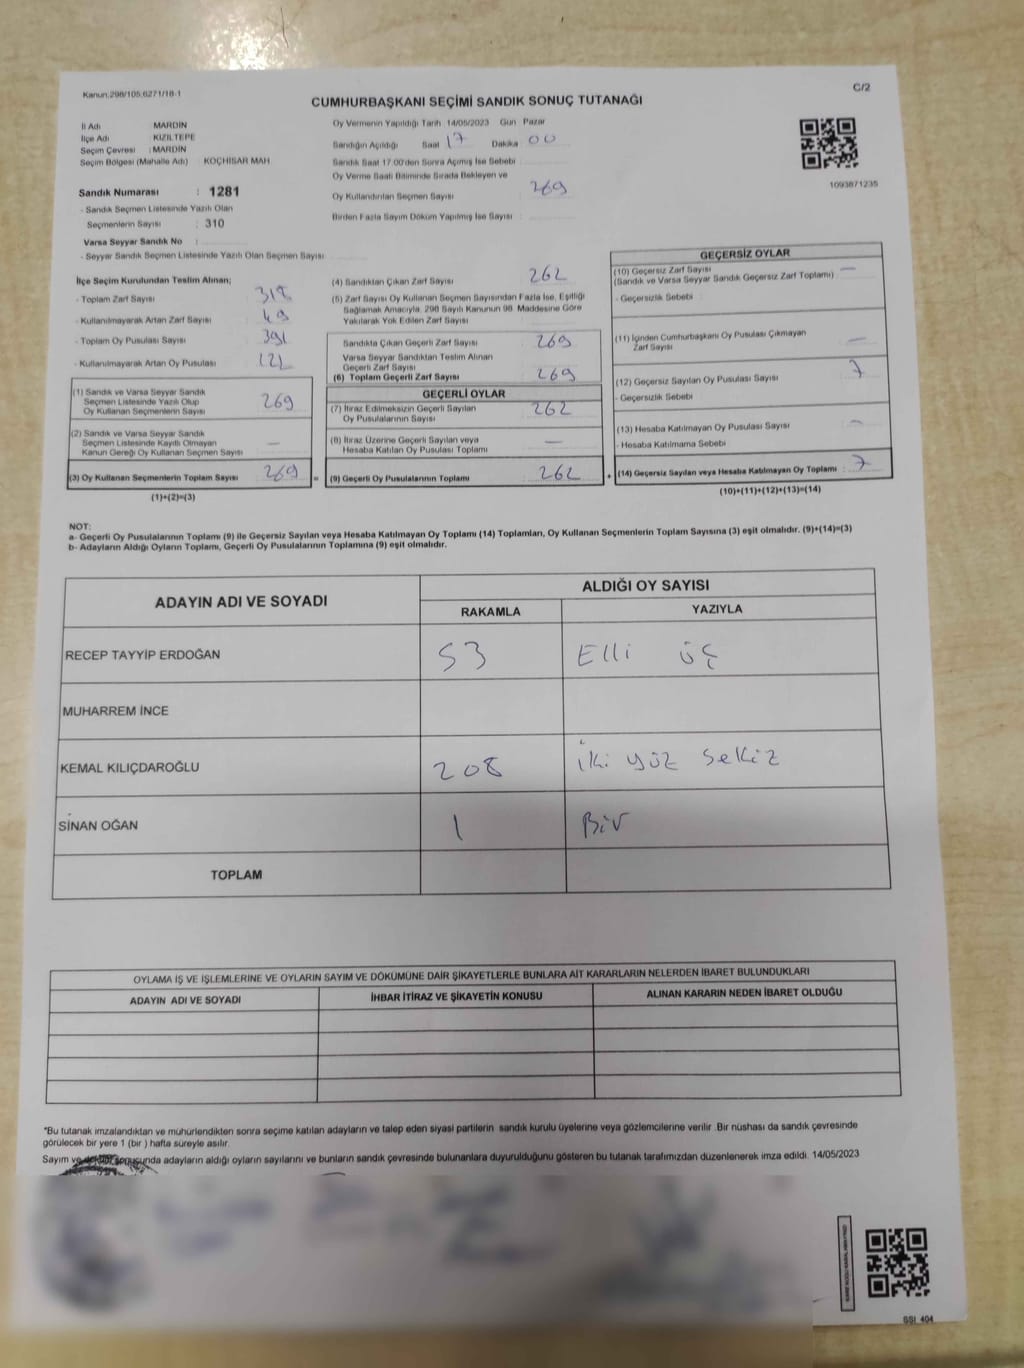 Kanun:298/105;6271/18-1
C/2
CUMHURBAŞKANI SEÇİMİ SANDIK SONUÇ TUTANAĞI
İl Adı : MARDİN
İlçe Adı : KIZILTEPE
Seçim Çevresi : MARDİN
Seçim Bölgesi (Mahalle Adı) : KOÇHİSAR MAH
Sandık Numarası : 1281
- Sandık Seçmen Listesinde Yazılı Olan
Seçmenlerin Sayısı : 310
Varsa Seyyar Sandık No :
- Seyyar Sandık Seçmen Listesinde Yazılı Olan Seçmen Sayısı :
Oy Vermenin Yapıldığı Tarih 14/05/2023 Gün Pazar
Sandığın Açıldığı Saat 17 Dakika 00
Sandık Saat 17.00'den Sonra Açmış İse Sebebi :
Oy Verme Saati Bitiminde Sırada Bekleyen ve
Oy Kullandırılan Seçmen Sayısı : 269
Birden Fazla Sayım Döküm Yapılmış İse Sayısı :
1093871235
İlçe Seçim Kurulundan Teslim Alınan;
- Toplam Zarf Sayısı : 318
- Kullanılmayarak Artan Zarf Sayısı : 49
- Toplam Oy Pusulası Sayısı : 391
- Kullanılmayarak Artan Oy Pusulası : 122
(1) Sandık ve Varsa Seyyar Sandık
Seçmen Listesinde Yazılı Olup
Oy Kullanan Seçmenlerin Sayısı : 269
(2) Sandık ve Varsa Seyyar Sandık
Seçmen Listesinde Kayıtlı Olmayan
Kanun Gereği Oy Kullanan Seçmen Sayısı : —
(3) Oy Kullanan Seçmenlerin Toplam Sayısı : 269
(1)+(2)=(3)
(4) Sandıktan Çıkan Zarf Sayısı : 262
(5) Zarf Sayısı Oy Kullanan Seçmen Sayısından Fazla İse, Eşitliği
Sağlamak Amacıyla, 298 Sayılı Kanunun 98. Maddesine Göre
Yakılarak Yok Edilen Zarf Sayısı :
Sandıkta Çıkan Geçerli Zarf Sayısı : 269
Varsa Seyyar Sandıktan Teslim Alınan
Geçerli Zarf Sayısı :
(6) Toplam Geçerli Zarf Sayısı : 269
GEÇERLİ OYLAR
(7) İtiraz Edilmeksizin Geçerli Sayılan
Oy Pusulalarının Sayısı : 262
(8) İtiraz Üzerine Geçerli Sayılan veya
Hesaba Katılan Oy Pusulası Toplamı : —
= (9) Geçerli Oy Pusulalarının Toplamı : 262 +
GEÇERSİZ OYLAR
(10) Geçersiz Zarf Sayısı : —
(Sandık ve Varsa Seyyar Sandık Geçersiz Zarf Toplamı)
- Geçersizlik Sebebi :
(11) İçinden Cumhurbaşkanı Oy Pusulası Çıkmayan
Zarf Sayısı : —
(12) Geçersiz Sayılan Oy Pusulası Sayısı : 7
- Geçersizlik Sebebi :
(13) Hesaba Katılmayan Oy Pusulası Sayısı : —
- Hesaba Katılmama Sebebi :
(14) Geçersiz Sayılan veya Hesaba Katılmayan Oy Toplamı : 7
(10)+(11)+(12)+(13)=(14)
NOT:
a- Geçerli Oy Pusulalarının Toplamı (9) ile Geçersiz Sayılan veya Hesaba Katılmayan Oy Toplamı (14) Toplamları, Oy Kullanan Seçmenlerin Toplam Sayısına (3) eşit olmalıdır. (9)+(14)=(3)
b- Adayların Aldığı Oyların Toplamı, Geçerli Oy Pusulalarının Toplamına (9) eşit olmalıdır.
ADAYIN ADI VE SOYADI
ALDIĞI OY SAYISI
RAKAMLA YAZIYLA
RECEP TAYYİP ERDOĞAN 53 Elli üç
MUHARREM İNCE
KEMAL KILIÇDAROĞLU 208 iki yüz sekiz
SİNAN OĞAN 1 Bir
TOPLAM
OYLAMA İŞ VE İŞLEMLERİNE VE OYLARIN SAYIM VE DÖKÜMÜNE DAİR ŞİKAYETLERLE BUNLARA AİT KARARLARIN NELERDEN İBARET BULUNDUKLARI
ADAYIN ADI VE SOYADI İHBAR İTİRAZ VE ŞİKAYETİN KONUSU ALINAN KARARIN NEDEN İBARET OLDUĞU
*Bu tutanak imzalandıktan ve mühürlendikten sonra seçime katılan adayların ve talep eden siyasi partilerin sandık kurulu üyelerine veya gözlemcilerine verilir .Bir nüshası da sandık çevresinde
görülecek bir yere 1 (bir ) hafta süreyle asılır.
Sayım ve döküm sonucunda adayların aldığı oyların sayılarını ve bunların sandık çevresinde bulunanlara duyurulduğunu gösteren bu tutanak tarafımızdan düzenlenerek imza edildi. 14/05/2023
SSI_404